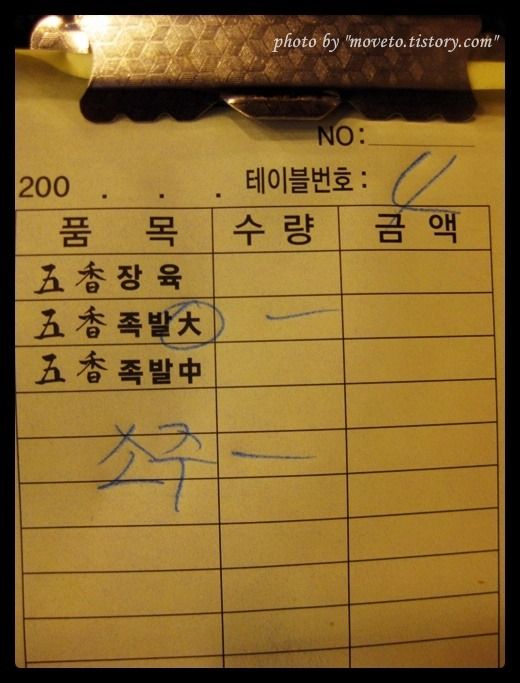 photo by "moveto.tistory.com"
NO:
200 . . . 테이블번호 : 4
품 목 수 량 금 액
五香장육
五香족발大 一
五香족발中
소주 一